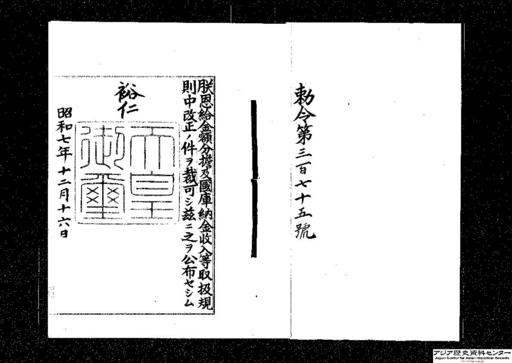 勅令第三百七十五號
朕恩給金額分擔及國庫納金收入等取扱規
則中改正ノ件ヲ裁可シ茲ニ之ヲ公布セシム
裕仁
天皇
御璽
昭和七年十二月十六日
アジア歴史資料センター
Japan Center for Asian Historical Records